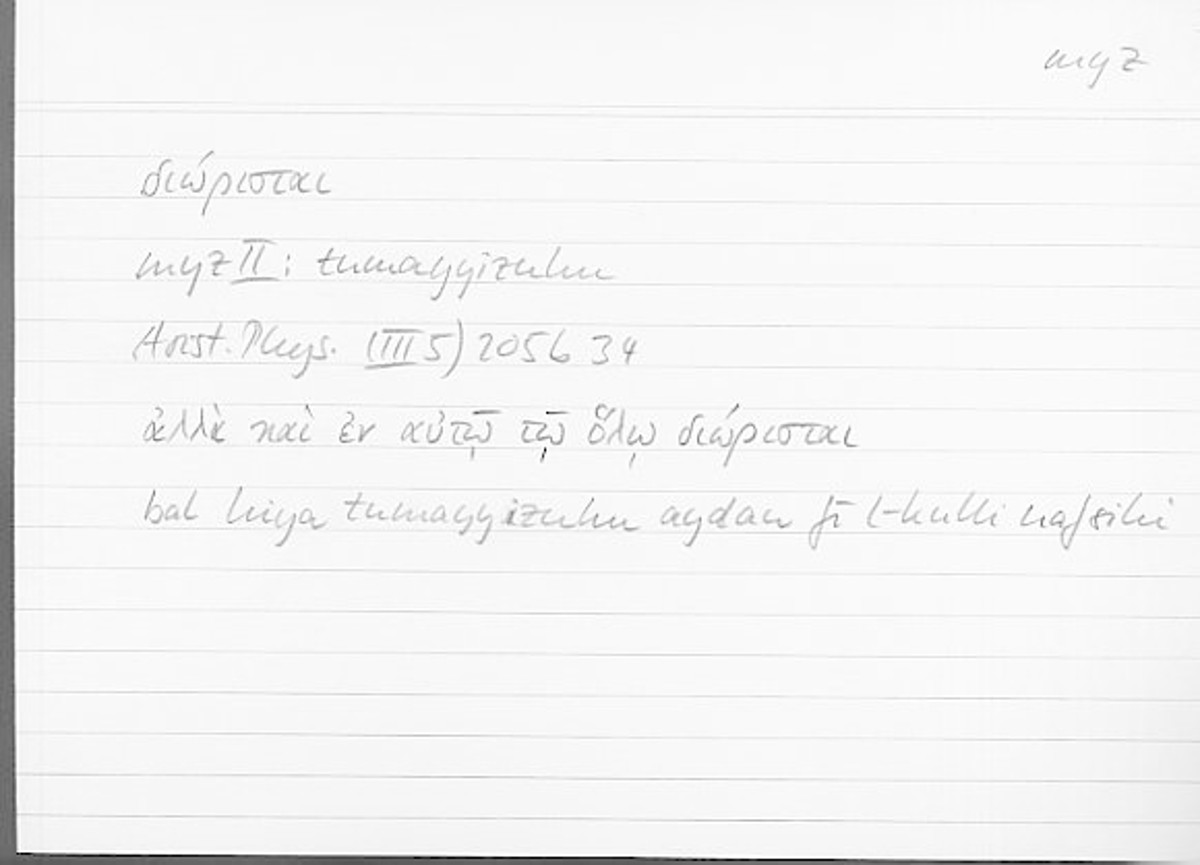 myz
διώρισται
myz II: tumayyizuhu
Arist. Phys. (III 5) 205b 34
ἀλλὰ καὶ ἐν αὐτῷ τῷ ὅλῳ διώρισται
bal hiya tumayyizuhu aydan fī l-kulli nafsihi